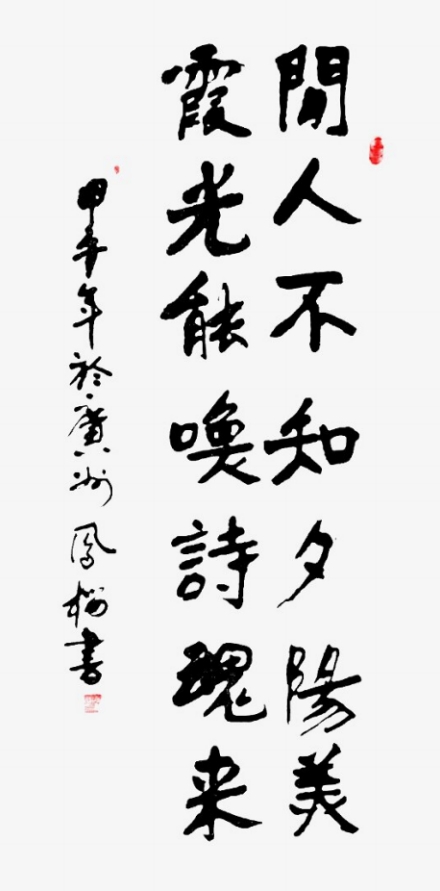 閒人不知夕陽美
霞光能喚詩魂来
甲午年於廣州 鳳 書